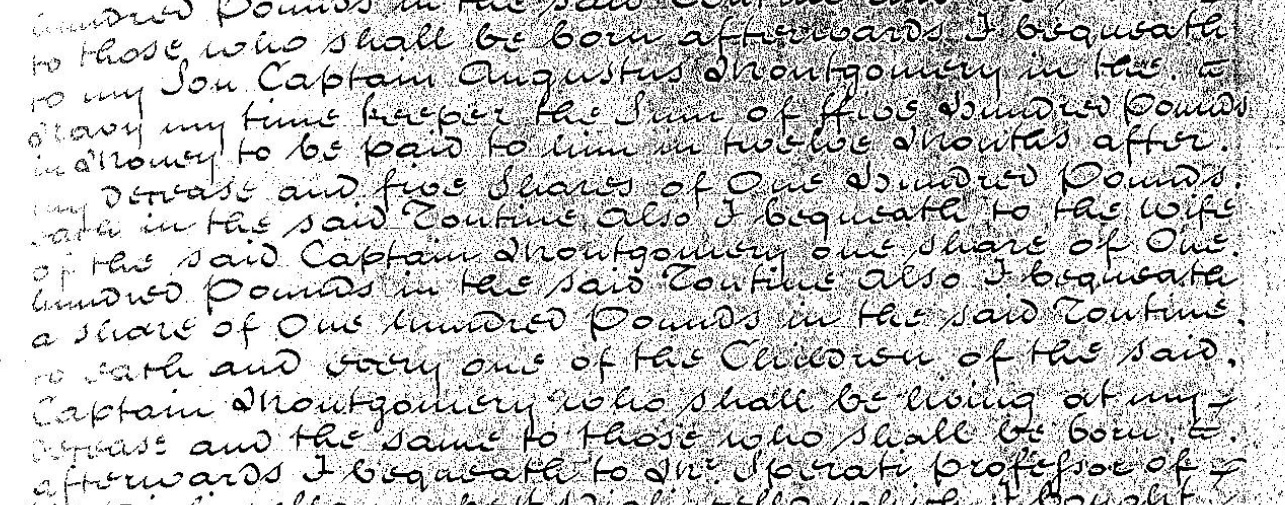 hundred Pounds in the said Tontine and the same
to those who shall be born afterwards I bequeath
to my Son Captain Augustus Montgomery in the
Navy my time keeper the Sum of ffive Hundred Pounds
in Money to be paid to him in twelve Months after.
my Decease and five Shares of One Hundred Pounds.
each in the said Toutine Also I bequeath to the wife
of the said Captain Montgomery one share of One.
hundred Pounds in the said Toutine Also I bequeath
a share of One hundred Pounds in the said Toutine.
to each and every one of the Children of the said.
Captain Montgomery who shall be living at my
decease and the same to those who shall be born.
afterwards I bequeath to Mr. Sperati professor of